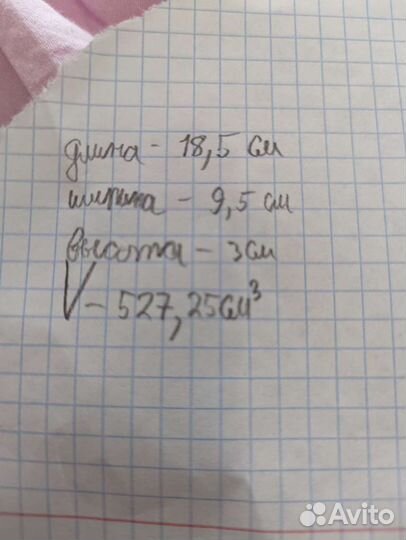 длина - 18,5 см
ширина - 9,5 см
высота - 3 см
V - 527,25 см³
Avito